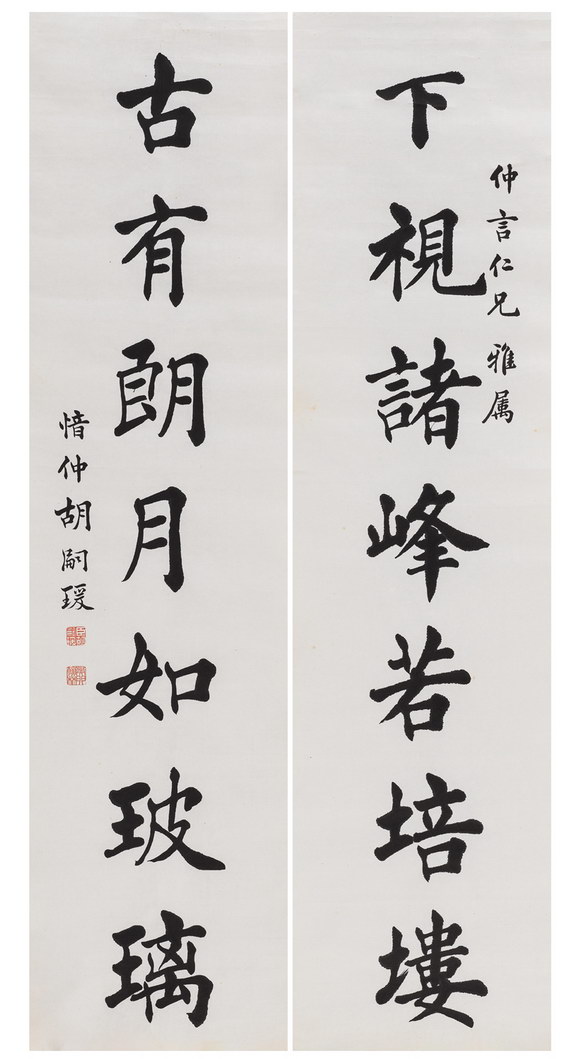 仲言仁兄雅属
下視諸峰若培塿
古有朗月如玻璃
愔仲胡嗣瑗